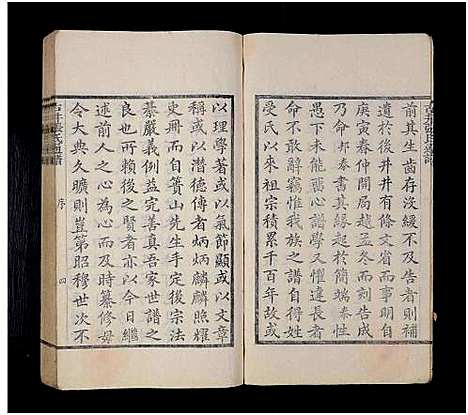 前其生齒存沒緩不及告者則補
遺於後井井有條文省而事明自
庚寅春仲開局越孟冬而刻告成
乃命邦泰書其緣起於簡端泰性
情迂下久未心譜學又懼違長者
意敢辭竊惟我族之譜昔創
受氏以來如宗功宗德積累千百年故或
以理學著或以氣節顯或以文章
稱或以潛德傳者炳炳麟麟照耀
史冊而自簣山先生手定後宗法
綦嚴義例益完善真吾家世譜之
可與也所賴後之賢者以今日繼
述前人之心為心而及時纂修毋
令大典久曠則豈第昭穆世次不
序
四